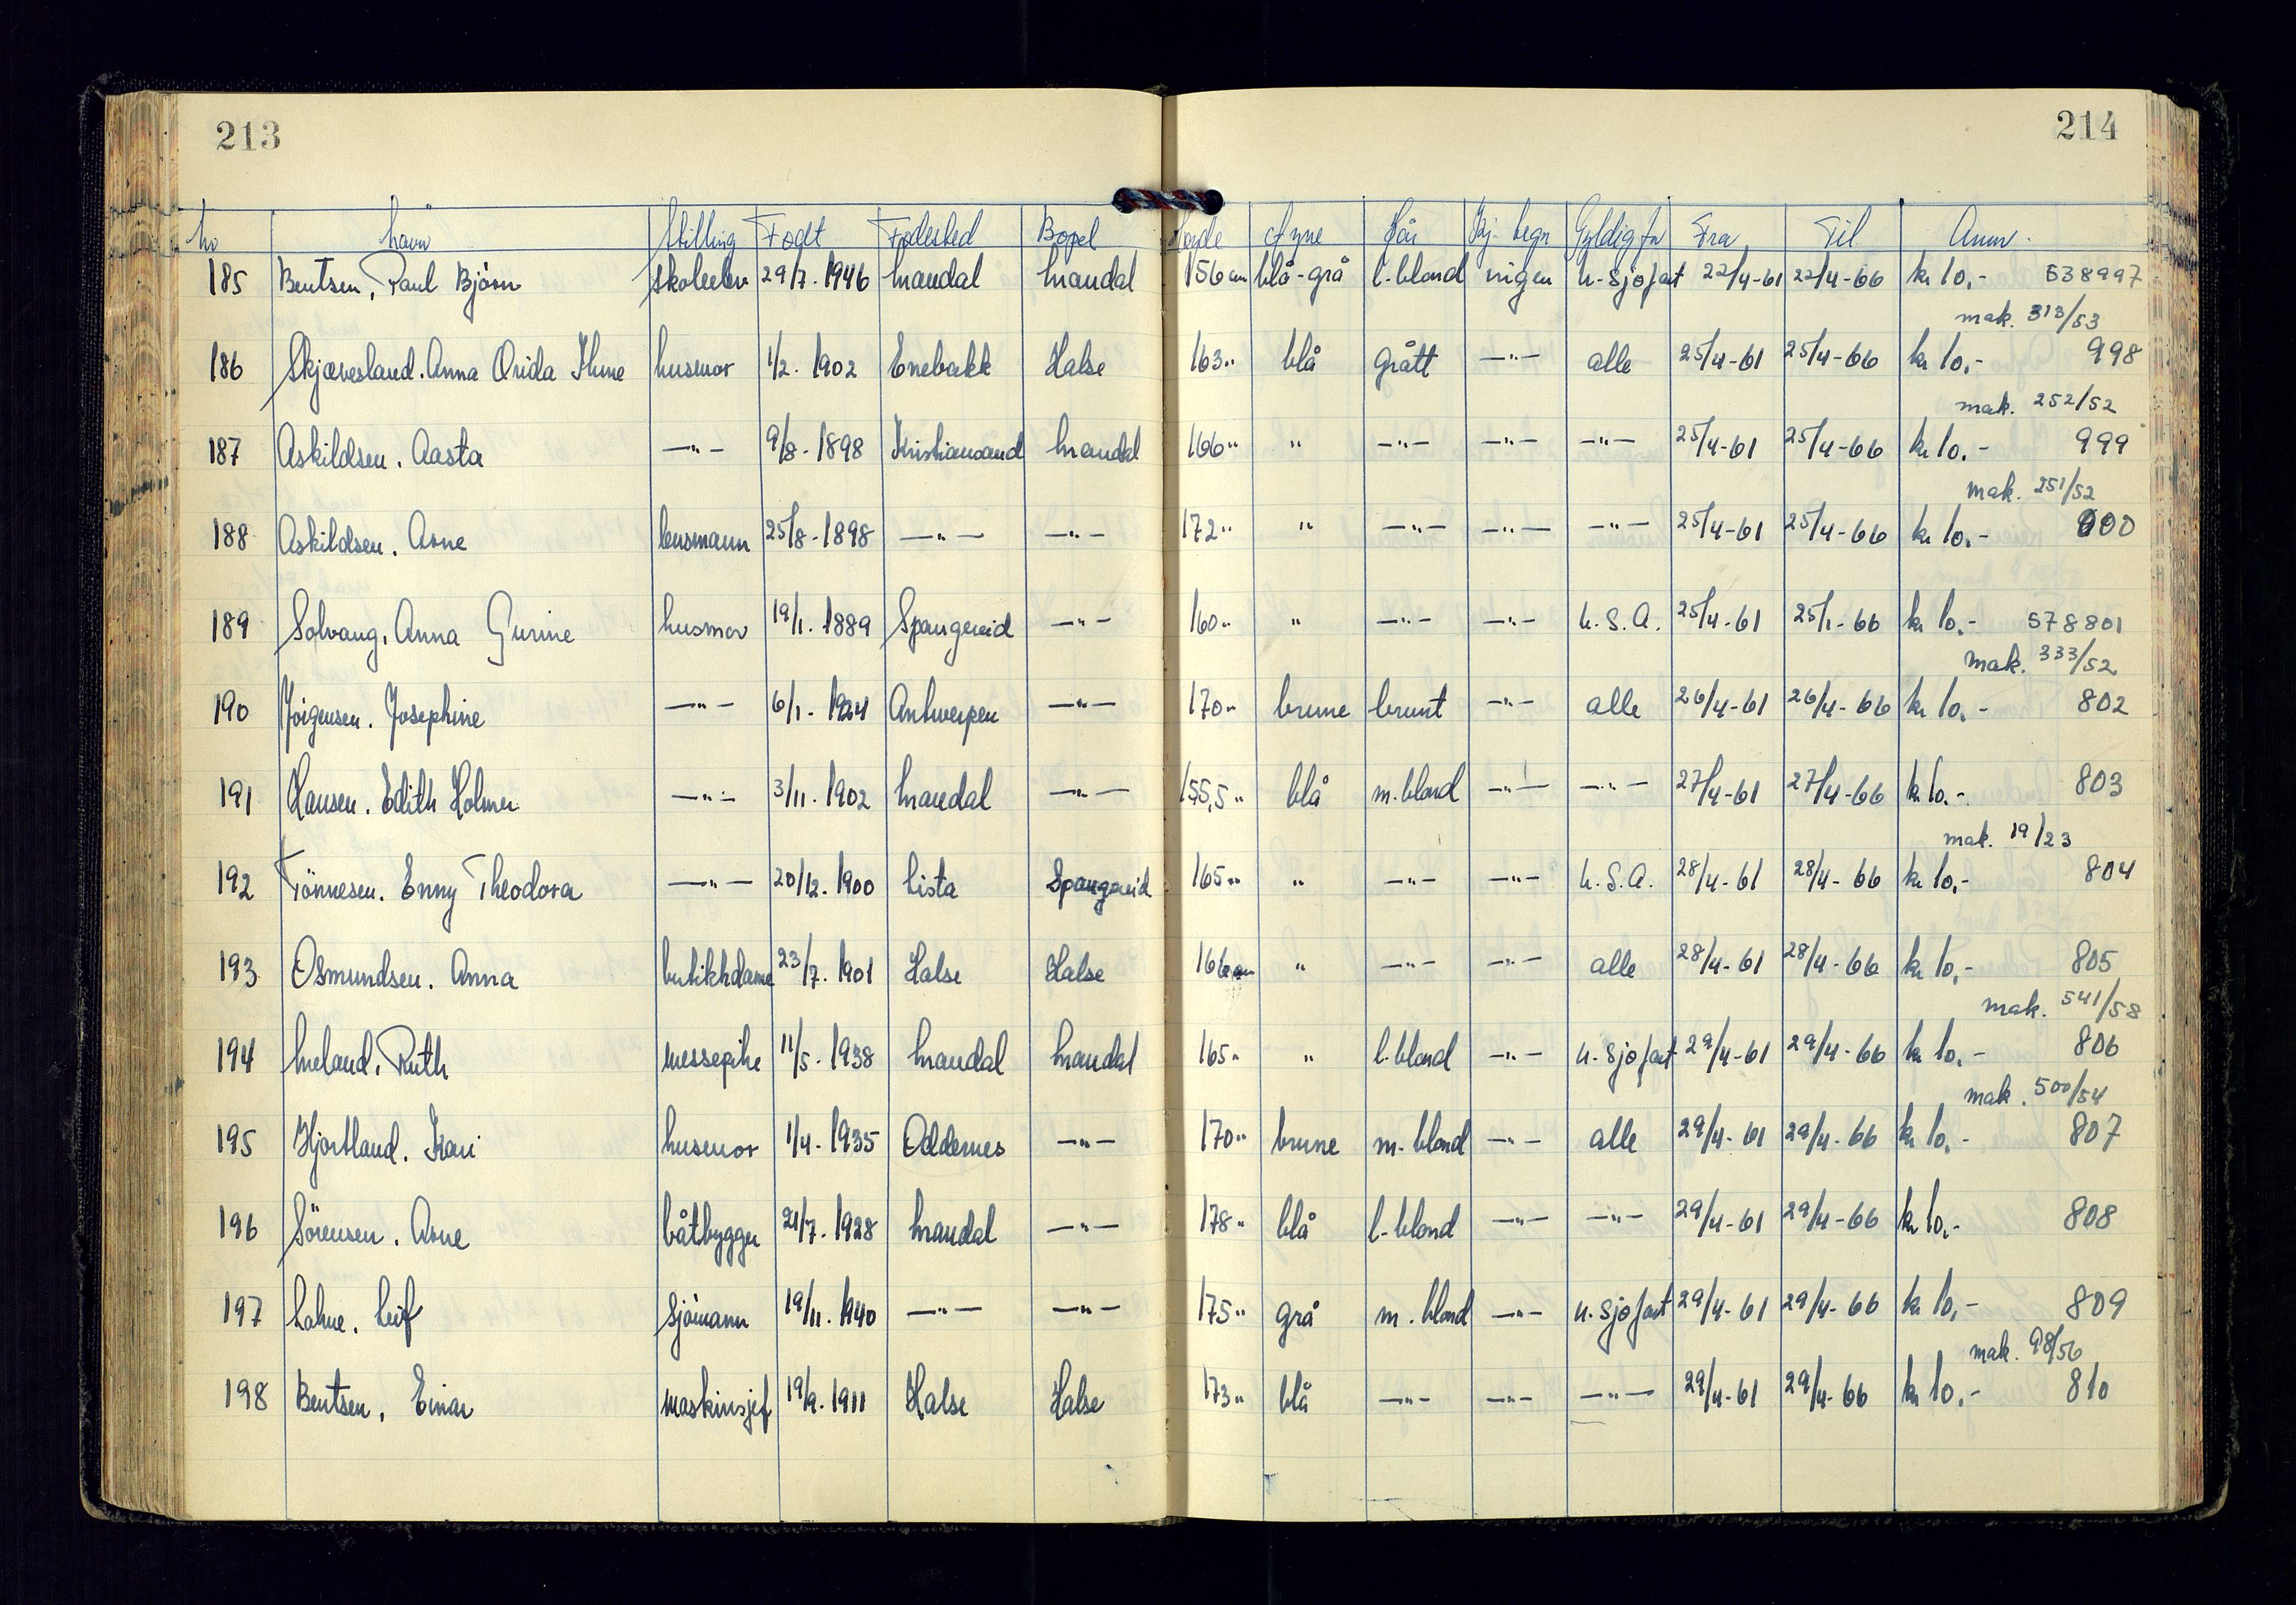 213
214
Nr Navn Stilling Født Fødested Bopel Høyde Øyne Hår Kj. tegn Gyldig for Fra Til Anm.
185 Bentsen, Paul Bjørn skoleelev 29/7. 1946 Mandal Mandal 156 cm blå-grå l-blond ingen u. sjøfart 22/4-61 22/4-66 kr 10.- 538997
mak. 313/53
186 Skjævesland. Anna husmor 1/2. 1902 Enebakk Halse 163 " blå grått —"— alle 25/4-61 25/4-66 kr 10.- 998
mak. 252/52
187 Askildsen. Aasta —"— 9/8-1898 Kristiansand Mandal 166 " " —"— —"— —"— 25/4-61 25/4-66 kr 10.- 999
mak. 251/52
188 Askildsen. Arne 25/8-1898 —"— —"— 172 " " —"— —"— —"— 25/4-61 25/4-66 kr 10.- 000
189 Solvang, Anna Gurine husmor 19/1. 1889 Spangereid —"— 160 " " —"— —"— U.S.A. 25/4-61 25/1-66 kr 10.- 578801
mak. 333/52
190 Jörgensen. Josephine —"— 6/1. 1924 Antwerpen —"— 170 " brune brunt —"— alle 26/4-61 26/4-66 kr 10.- 802
191 Hansen. Edith Holmer —"— 3/11. 1902 Mandal —"— 155,5 " blå m. blond —"— —"— 27/4-61 27/4-66 kr 10.- 803
mak. 19/23
192 Tönnesen. Enny Theodora —"— 20/12. 1900 Lista Spangereid 165 " " —"— —"— U.S.A. 28/4-61 28/4-66 kr 10.- 804
193 Osmundsen. Anna butikkdame 23/7. 1901 Halse Halse 166 cm " —"— —"— alle 28/4-61 28/4-66 kr 10.- 805
mak. 541/58
194 Meland, Ruth messepike 11/5. 1938 Mandal Mandal 165 " " l-blond —"— u. sjøfart 29/4-61 29/4-66 kr 10.- 806
mak. 500/54
195 Hjortland. Kari husmor 1/4. 1935 Oddernes —"— 170 " brune m. blond —"— alle 29/4-61 29/4-66 kr 10.- 807
196 Sörensen. Arne båtbygger 21/7. 1928 Mandal —"— 178 " blå l-blond —"— —"— 29/4-61 29/4-66 kr 10.- 808
197 Lohne. Leif sjömann 19/11. 1940 —"— —"— 175 " grå m. blond —"— u. sjøfart 29/4-61 29/4-66 kr 10,- 809
mak. 98/56
198 Bentsen, Einar maskinsjef 19/9. 1911 Halse Halse 173 " blå —"— —"— —"— 29/4-61 29/4-66 kr 10.- 810